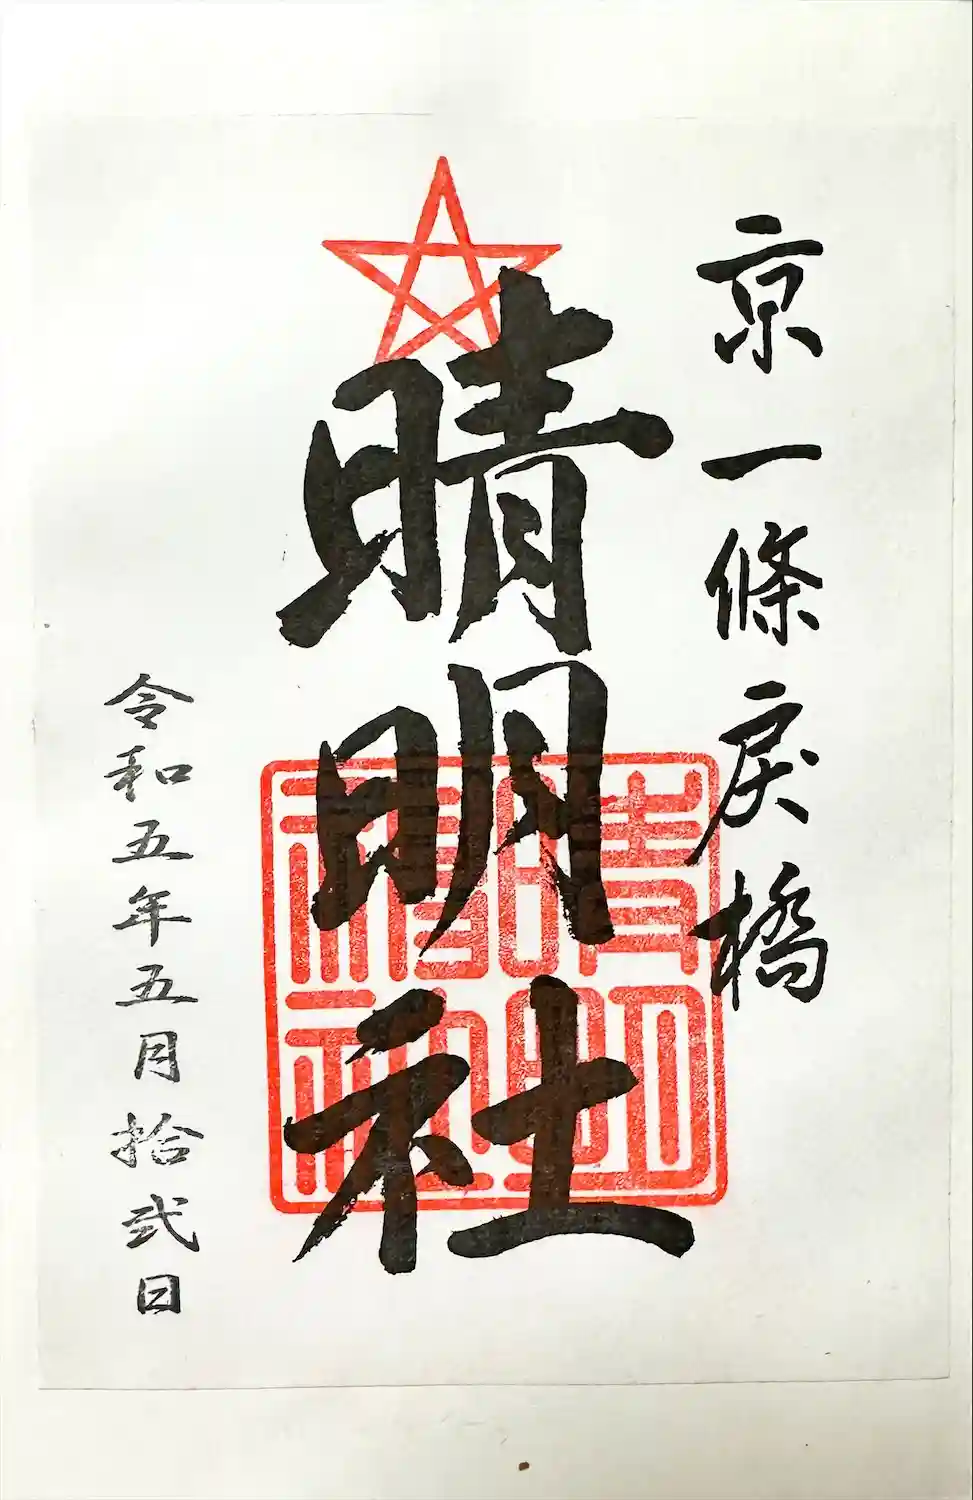 京一條戻橋
晴明社
晴明神社
令和五年五月拾弐日